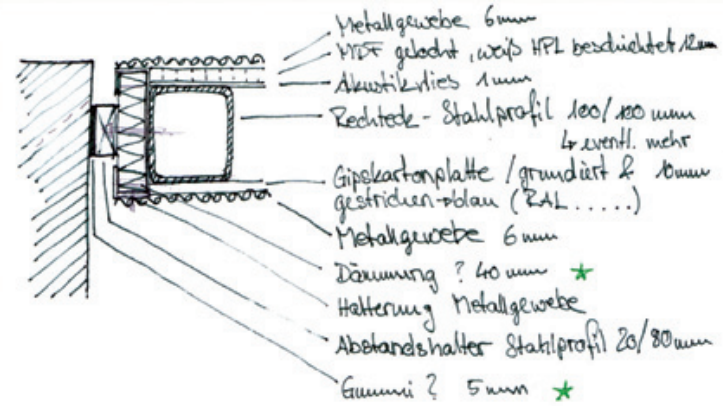 Metallgewebe 6mm
MDF gelocht, weiß HPL beschichtet 12mm
Akustikvlies 1mm
Rechteck-Stahlprofil 100/100 mm
↳ eventl. mehr
Gipskartonplatte / grundiert & 10mm
gestrichen → blau (RAL.....)
Metallgewebe 6mm
Dämmung ? 40mm *
Halterung Metallgewebe
Abstandshalter Stahlprofil 20/80mm
Gummi ? 5mm *